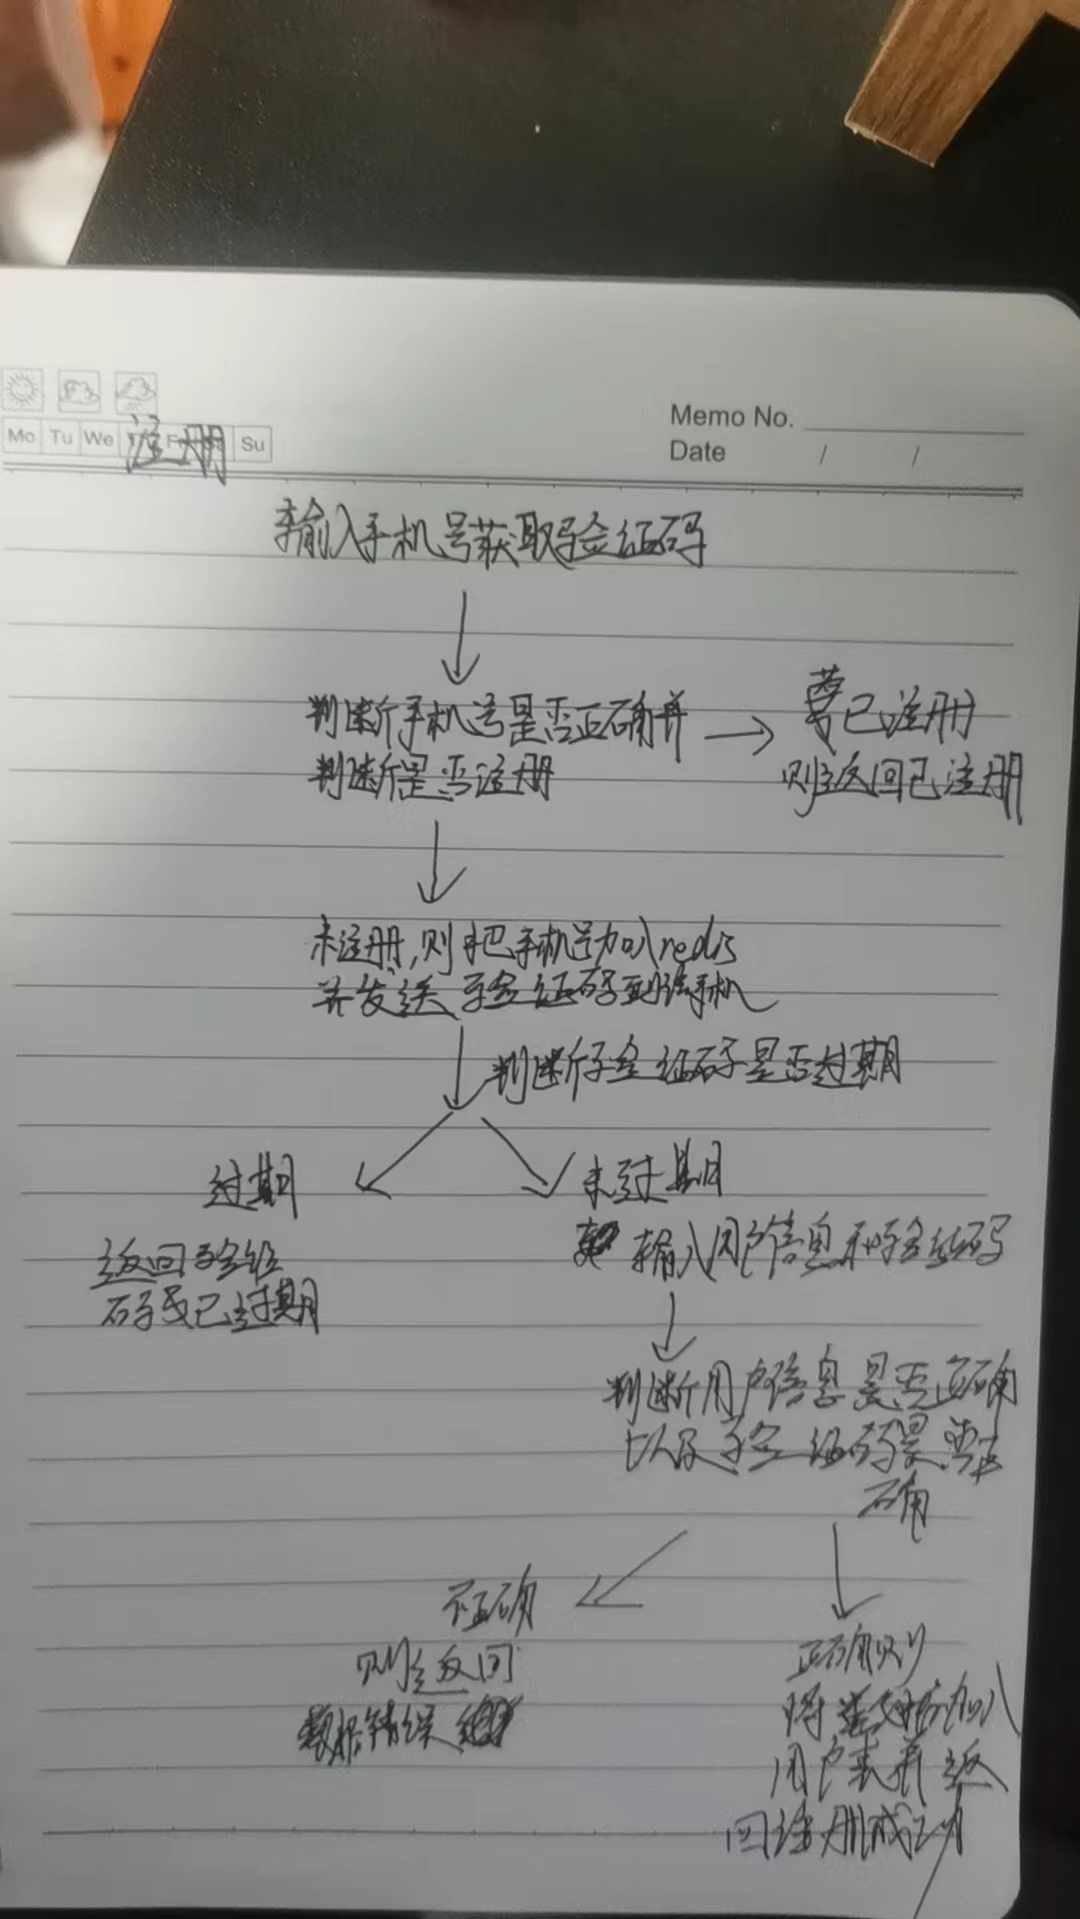 Memo No.
Mo Tu We F Su
Date / /
注册
输入手机号获取验证码
判断手机号是否正确并
判断是否注册
若已注册
则返回已注册
未注册,则把手机号加入redis
并发送验证码到该手机
判断验证码是否过期
过期
返回验证
码已过期
未过期
输入用户信息和验证码
判断用户信息是否正确
以及验证码是否正
确
不正确
则返回
数据错误
正确则
将数据加入
用户表并返
回注册成功